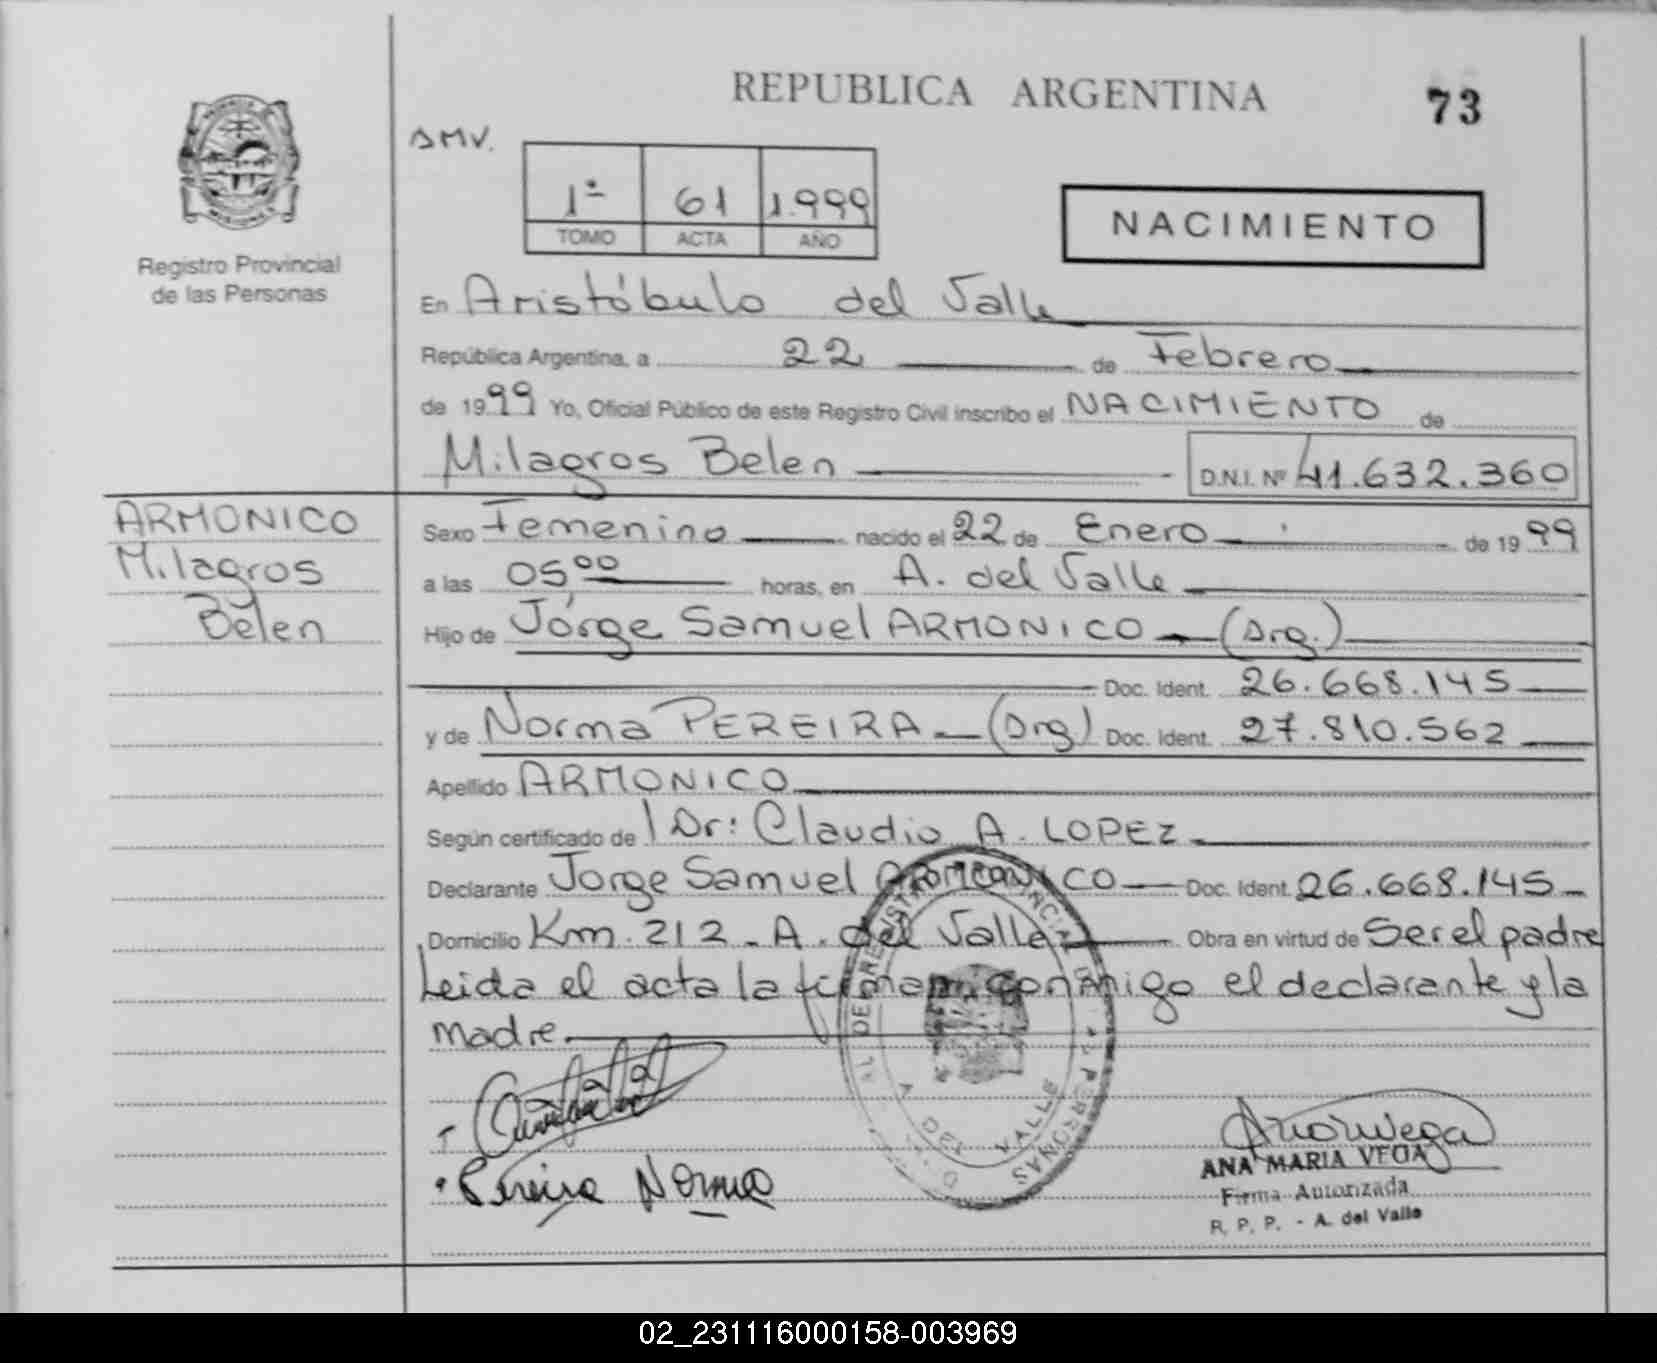 REPUBLICA ARGENTINA
73
DMV.
1ª 61 1.999
TOMO ACTA AÑO
NACIMIENTO
Registro Provincial
de las Personas
En Aristóbulo del Valle
República Argentina, a 22 de Febrero
de 1999 Yo, Oficial Público de este Registro Civil inscribo el NACIMIENTO de
Milagros Belen D.N.I. Nº 41.632.360
ARMONICO
Milagros
Belen
Sexo Femenino nacido el 22 de Enero de 1999
a las 05⁰⁰ horas, en A. del Valle
Hijo de Jorge Samuel ARMONICO (Arg.)
Doc. Ident. 26.668.145
y de Norma PEREIRA (Arg) Doc. Ident. 27.810.562
Apellido ARMONICO
Según certificado de Dr: Claudio A. LOPEZ
Declarante Jorge Samuel ARMONICO Doc. Ident. 26.668.145
Domicilio Km. 212 - A. del Valle Obra en virtud de Ser el padre
Leida el acta la firman conmigo el declarante y la
madre.
Pereira Norma
ANA MARIA VEGA
Firma Autorizada
R. P. P. - A. del Valle
02_231116000158-003969